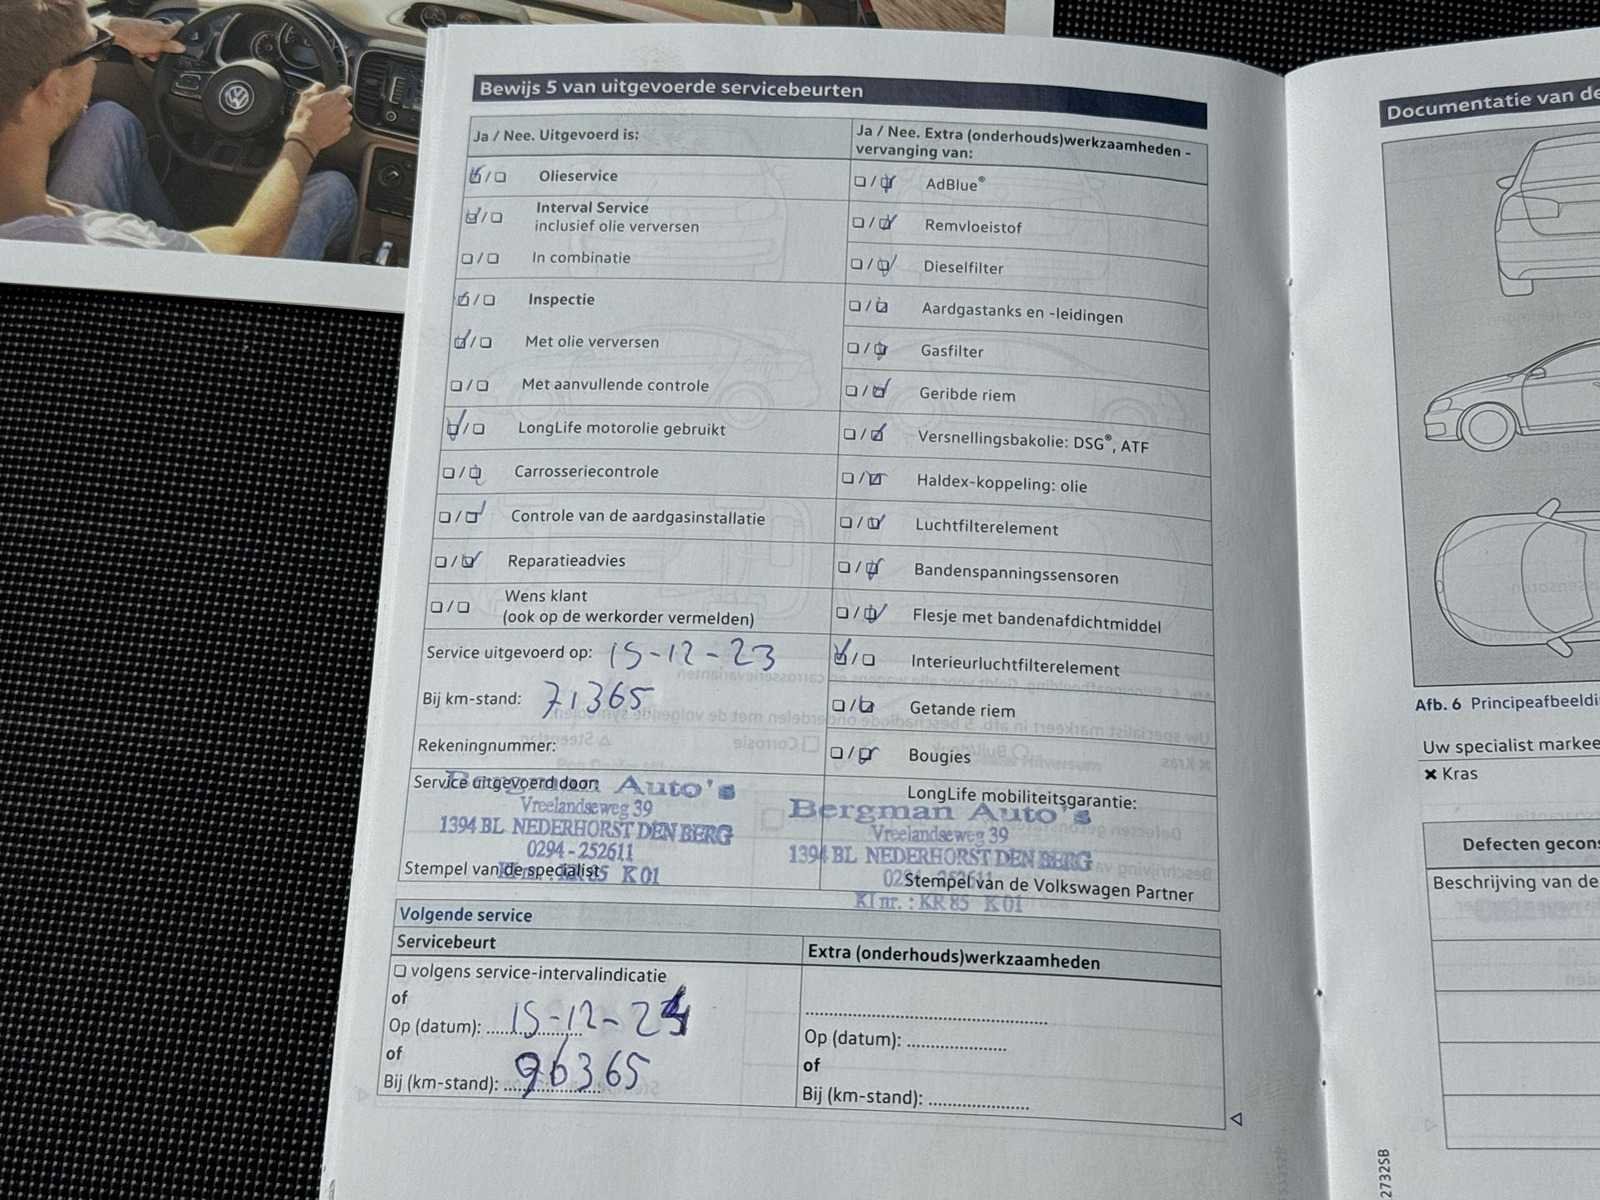 Bewijs 5 van uitgevoerde servicebeurten
Ja / Nee. Uitgevoerd is:
☑/☐ Olieservice
☑/☐ Interval Service
inclusief olie verversen
☐/☐ In combinatie
☑/☐ Inspectie
☑/☐ Met olie verversen
☐/☐ Met aanvullende controle
☑/☐ LongLife motorolie gebruikt
☐/☑ Carrosseriecontrole
☐/☑ Controle van de aardgasinstallatie
☐/☑ Reparatieadvies
☐/☐ Wens klant
(ook op de werkorder vermelden)
Service uitgevoerd op: 15-12-23
Bij km-stand: 71365
Rekeningnummer:
Service uitgevoerd door:
Bergman Auto's
Vreelandseweg 39
1394 BL NEDERHORST DEN BERG
0294-252611
KI nr. : KR 85 K 01
Stempel van de specialist
Ja / Nee. Extra (onderhouds)werkzaamheden -
vervanging van:
☐/☑ AdBlue®
☐/☑ Remvloeistof
☐/☑ Dieselfilter
☐/☑ Aardgastanks en -leidingen
☐/☑ Gasfilter
☐/☑ Geribde riem
☐/☑ Versnellingsbakolie: DSG®, ATF
☐/☑ Haldex-koppeling: olie
☐/☑ Luchtfilterelement
☐/☑ Bandenspanningssensoren
☐/☑ Flesje met bandenafdichtmiddel
☑/☐ Interieurluchtfilterelement
☐/☑ Getande riem
☐/☑ Bougies
LongLife mobiliteitsgarantie:
Bergman Auto's
Vreelandseweg 39
1394 BL NEDERHORST DEN BERG
0294-252611
KI nr. : KR 85 K 01
Stempel van de Volkswagen Partner
Volgende service
Servicebeurt
☐ volgens service-intervalindicatie
of
Op (datum): 15-12-24
of
Bij (km-stand): 96365
Extra (onderhouds)werkzaamheden
Op (datum): ....................
of
Bij (km-stand): ....................
Documentatie van de
Afb. 6 Principeafbeeldi
Uw specialist markee
✖ Kras
Defecten gecons
Beschrijving van de
2732SB